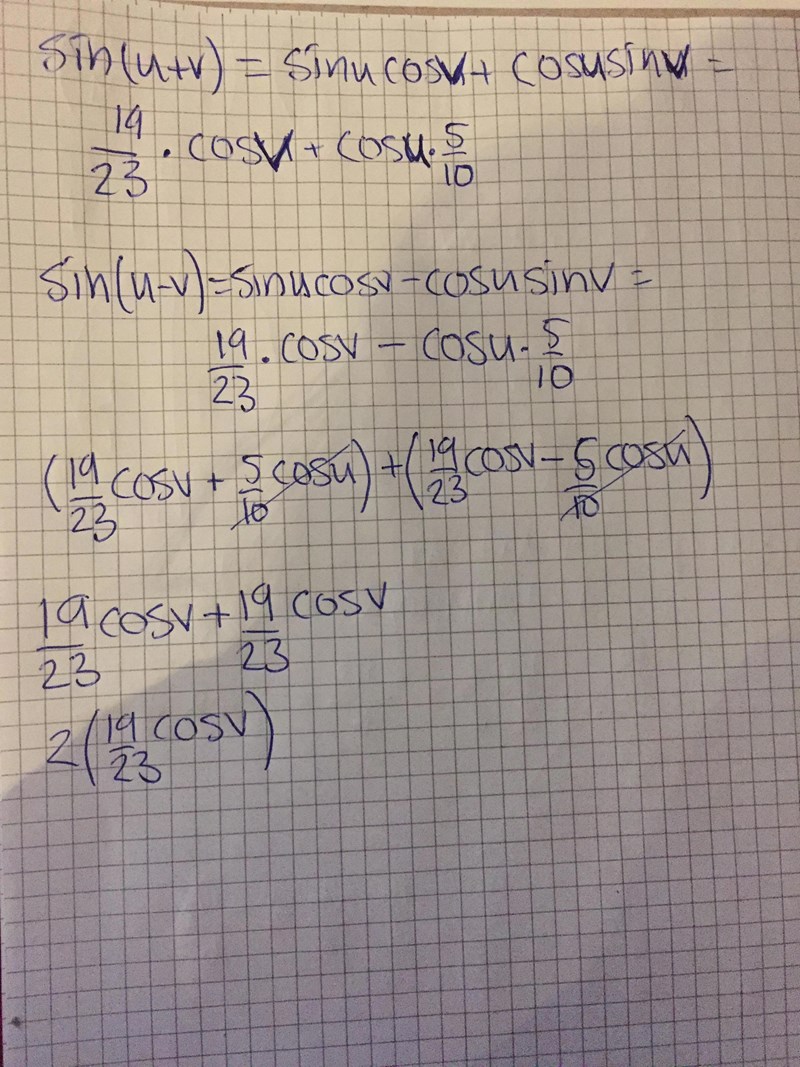 sin(u+v) = sinucosv + cosusinv =
19/23 · cosv + cosu · 5/10
sin(u-v) = sinucosv - cosusinv =
19/23 · cosv - cosu · 5/10
(19/23 cosv + 5/10 cosu) + (19/23 cosv - 5/10 cosu)
19/23 cosv + 19/23 cosv
2(19/23 cosv)